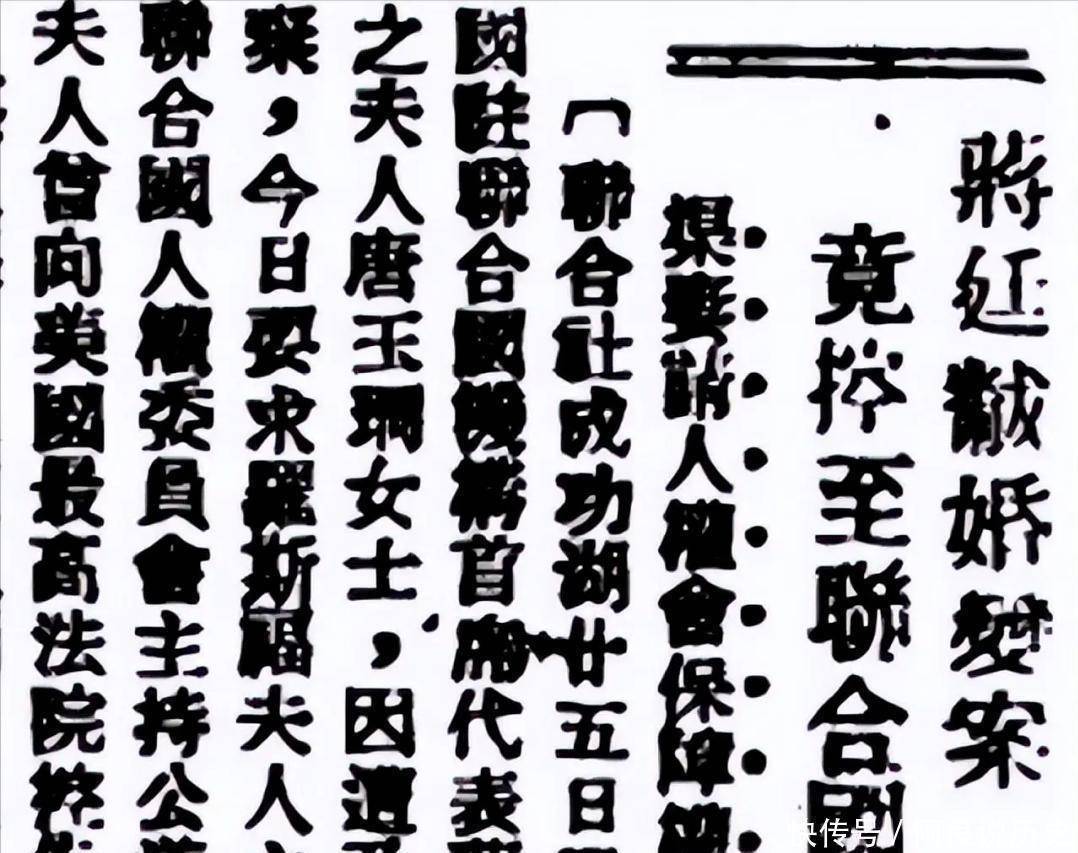 蔣廷黻婚變案
竟控至聯合國
渠妻請人權會保障
〔聯合社成功湖廿五日
國駐聯合國機構首席代表
之夫人唐玉瑞女士,因遭
棄,今日要求羅斯福夫人
聯合國人權委員會主持公
夫人曾向美國最高法院控
快传号 /